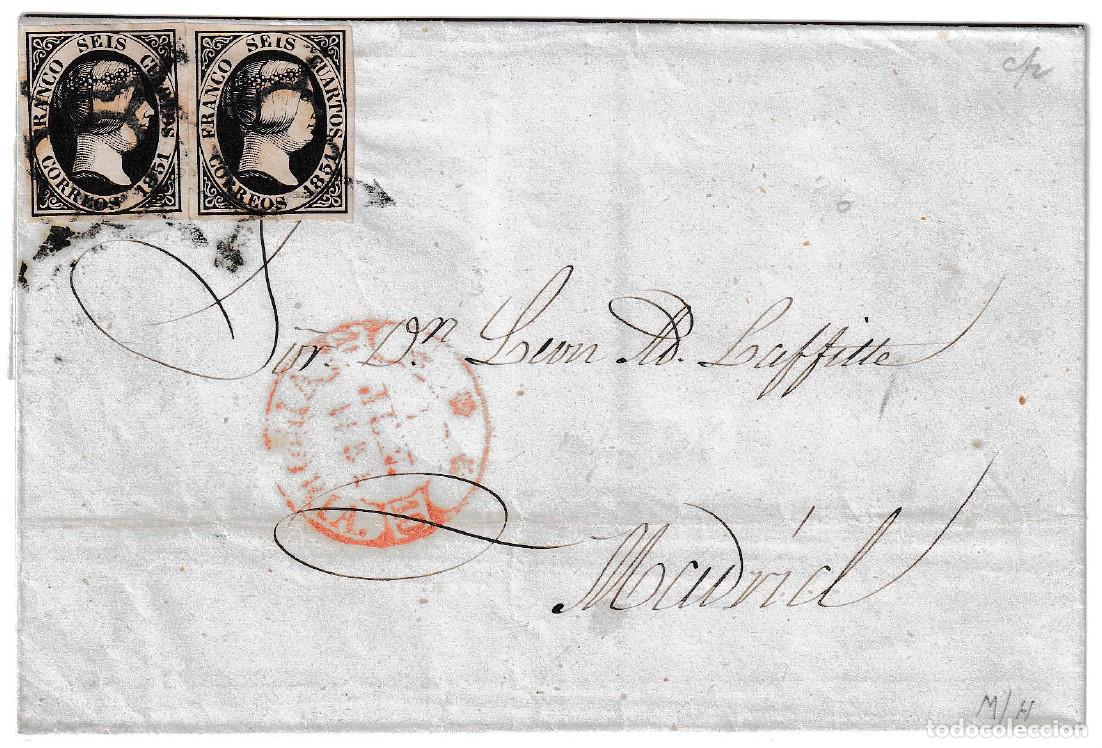 FRANCO SEIS CUARTOS
CORREOS 1851
FRANCO SEIS CUARTOS
CORREOS 1851
c/2
Sor. Dn. Leon Ad. Laffitte
10
Madrid
M/H
todocoleccion